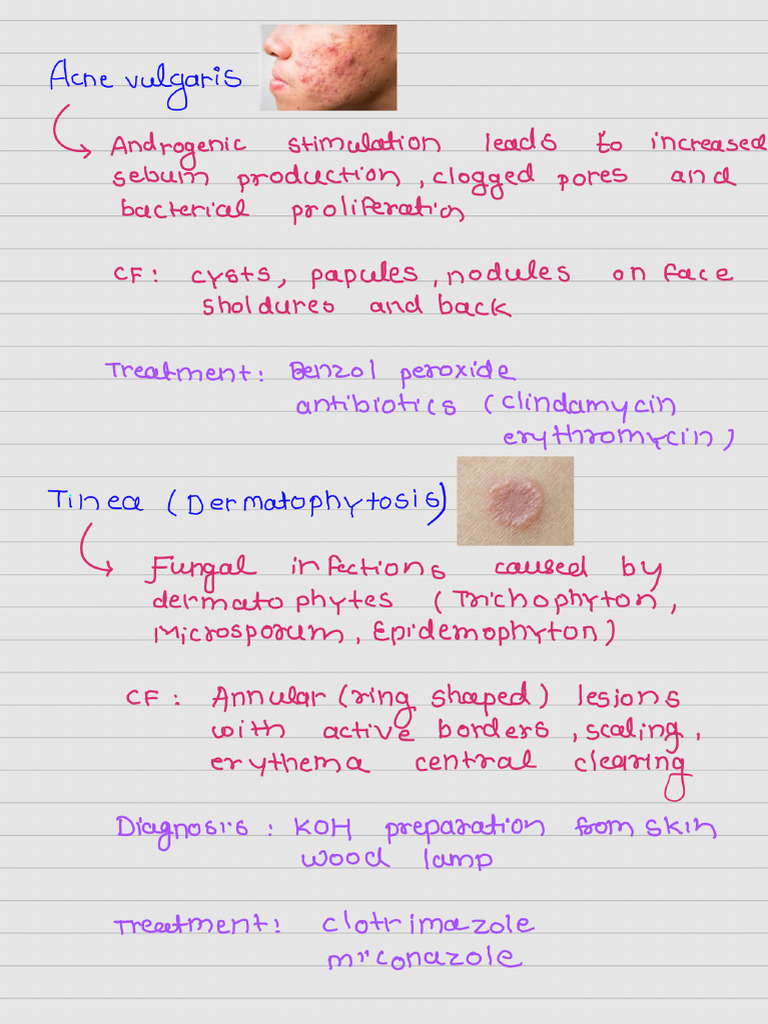 Acne vulgaris
Androgenic stimulation leads to increased
sebum production, clogged pores and
bacterial proliferation
CF: cysts, papules, nodules on face
sholdures and back
Treatment: Benzol peroxide
antibiotics (clindamycin
erythromycin)
Tinea (Dermatophytosis)
Fungal infections caused by
dermatophytes (Trichophyton,
Microsporum, Epidemophyton)
CF: Annular (ring shaped) lesions
with active borders, scaling,
erythema central clearing
Diagnosis: KOH preparation from skin
wood lamp
Treatment: clotrimazole
miconazole